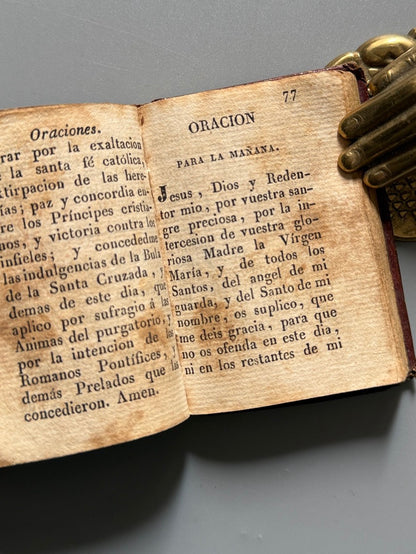 Oraciones.
rar por la exaltacion
e la santa fé católica,
tirpacion de las here-
ías; paz y concordia en-
re los Príncipes cristia-
nos, y victoria contra los
infieles; y concededme
las indulgencias de la Bula
de la Santa Cruzada, y
demas de este dia, que
aplico por sufragio á las
Animas del purgatorio,
por la intencion de los
Romanos Pontífices, y
demás Prelados que las
concedieron. Amen.
77
ORACION
PARA LA MAÑANA.
Jesus, Dios y Reden-
tor mio, por vuestra san-
gre preciosa, por la in-
tercesion de vuestra glo-
riosa Madre la Vírgen
María, y de todos los
Santos, del angel de mi
guarda, y del Santo de mi
nombre, os suplico, que
me deis gracia, para que
no os ofenda en este dia,
ni en los restantes de mi